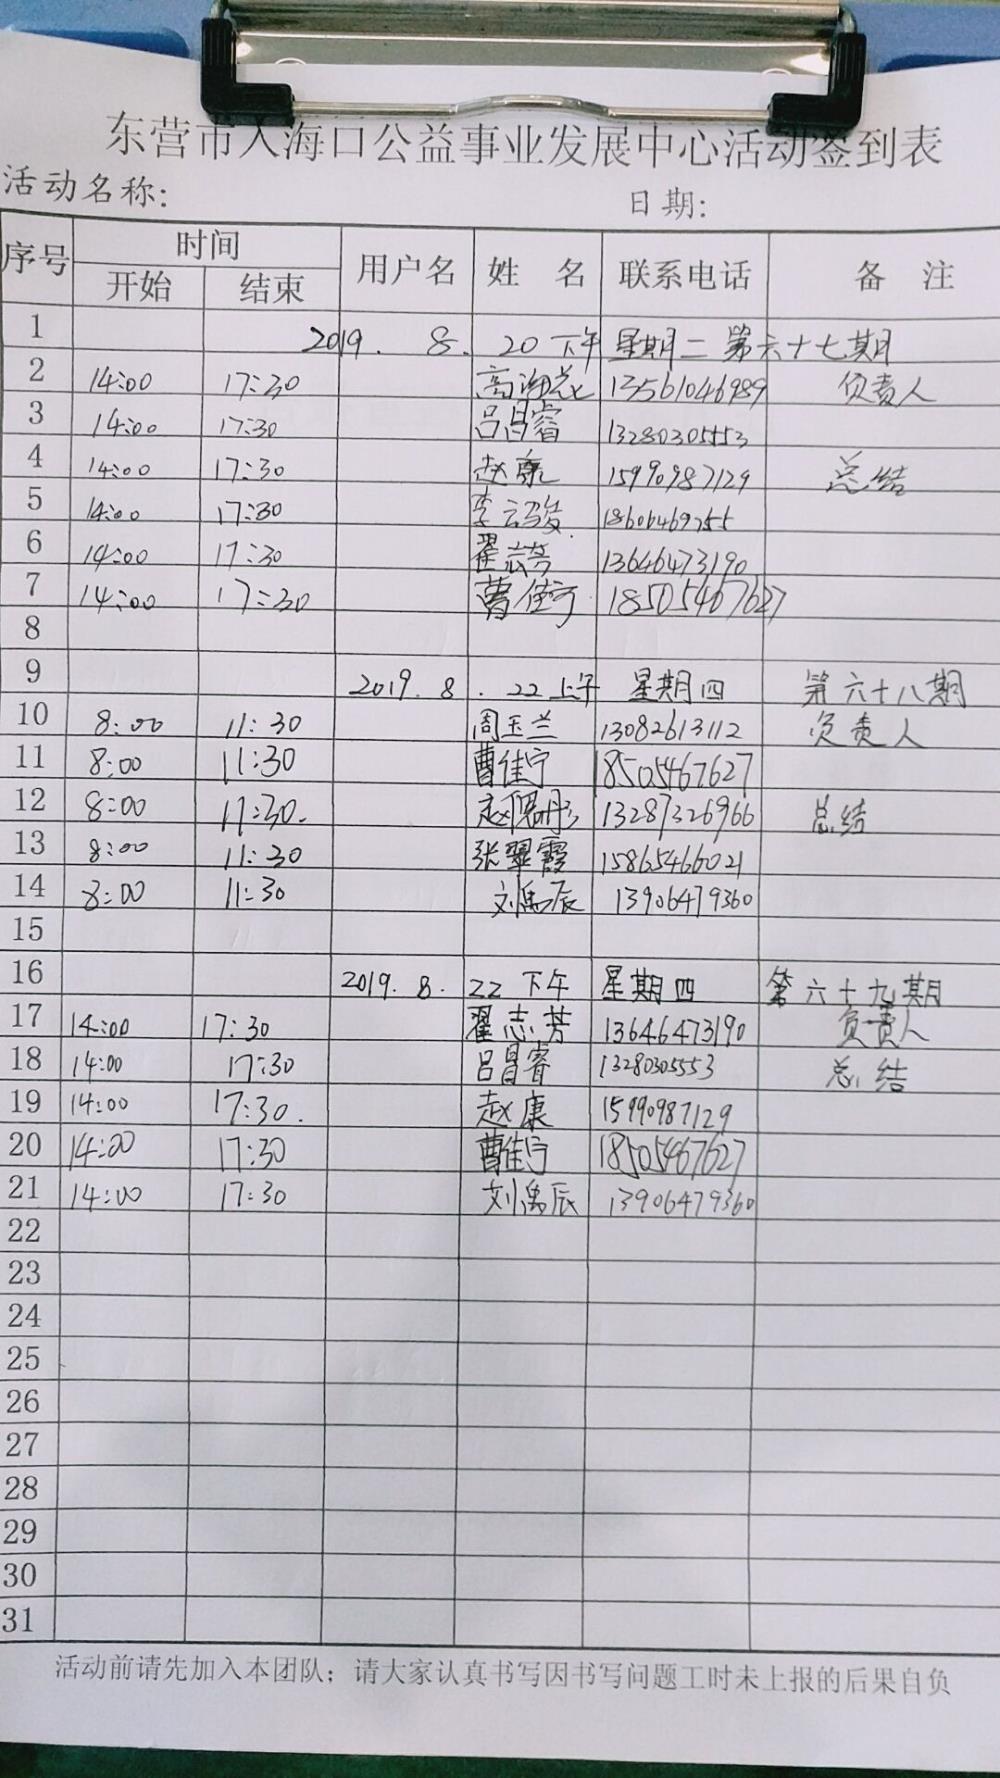 东营市入海口公益事业发展中心活动签到表
活动名称: 日期:
序号 时间 用户名 姓 名 联系电话 备 注
开始 结束
1 2019. 8. 20 下午 星期二 第六十七期
2 14:00 17:30 高海 13561046989 负责人
3 14:00 17:30 吕昌睿 13280305553
4 14:00 17:30 赵康 15990987129 总结
5 14:00 17:30 李云骏
6 14:00 17:30 翟志芳 13646473190
7 14:00 17:30 曹佳宁 18505467627
8
9 2019. 8. 22 上午 星期四 第六十八期
10 8:00 11:30 周玉兰 13082613112 负责人
11 8:00 11:30 曹佳宁 18505467627
12 8:00 11:30. 赵 13287326966 总结
13 8:00 11:30 张翠霞 15865466021
14 8:00 11:30 刘禹辰 13906479360
15
16 2019. 8. 22 下午 星期四 第六十九期
17 14:00 17:30 翟志芳 13646473190 负责人
18 14:00 17:30 吕昌睿 13280305553 总结
19 14:00 17:30. 赵康 15990987129
20 14:00 17:30 曹佳宁 18505467627
21 14:00 17:30 刘禹辰 13906479360
22
23
24
25
26
27
28
29
30
31
活动前请先加入本团队；请大家认真书写因书写问题工时未上报的后果自负